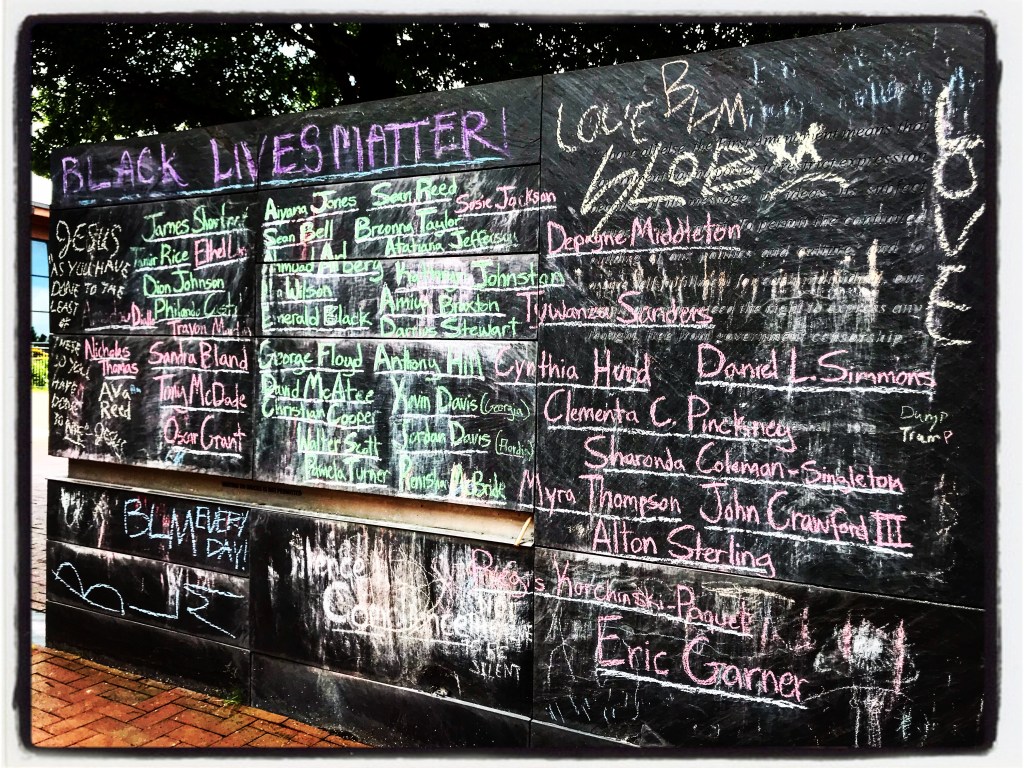 BLACK LIVES MATTER!
JESUS
"AS YOU HAVE
DONE TO THE
LEAST
OF
THESE
SO YOU
HAVE
DONE
TO
James
Rice
Dion Johnson
Philando
Trayvon
Nicholas
Thomas
Ava
Reed
Sandra Bland
Tony McDade
Oscar Grant
Aiyana Jones
Sean Reed
Susie Jackson
Sean Bell
Breonna Taylor
Atatiana Jefferson
Johnston
Wilson
Amiya Braxton
Emerald Black
Darrius Stewart
George Floyd
Anthony Hill
David McAtee
Davis (Georgia)
Christian Cooper
Jordan Davis
Walter Scott
Pamela Turner
Renisha McBride
LOVE BLM
LOVE
Depayne Middleton
Tywanza Sanders
Cynthia Hurd
Daniel L. Simmons
Clementa C. Pinckney
Dump
Trump
Sharonda Coleman-Singleton
Myra Thompson
John Crawford III
Alton Sterling
Korchinski-Paquet
Eric Garner
BLM EVERY
DAY!
Silence
Compliance
BE
SILENT